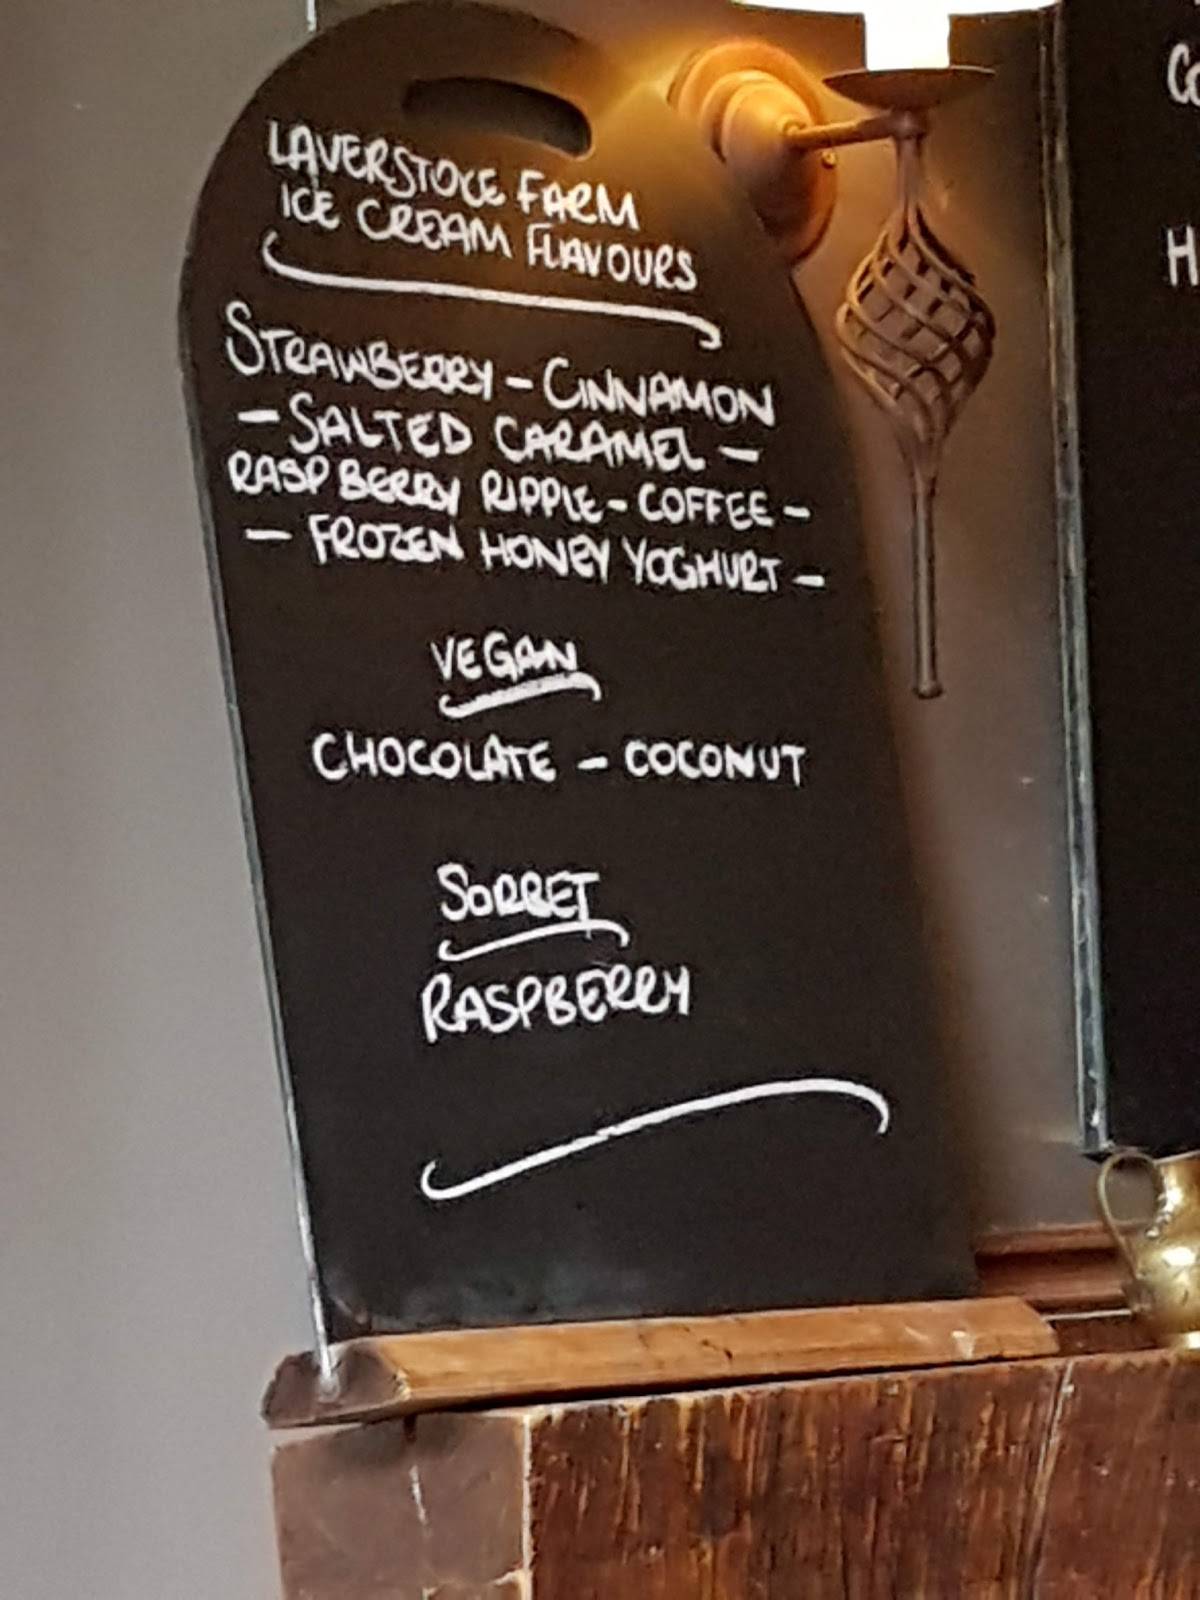 LAVERSTOKE FARM
ICE CREAM FLAVOURS
STRAWBERRY - CINNAMON
- SALTED CARAMEL -
RASPBERRY RIPPLE - COFFEE -
- FROZEN HONEY YOGHURT -
VEGAN
CHOCOLATE - COCONUT
SORBET
RASPBERRY